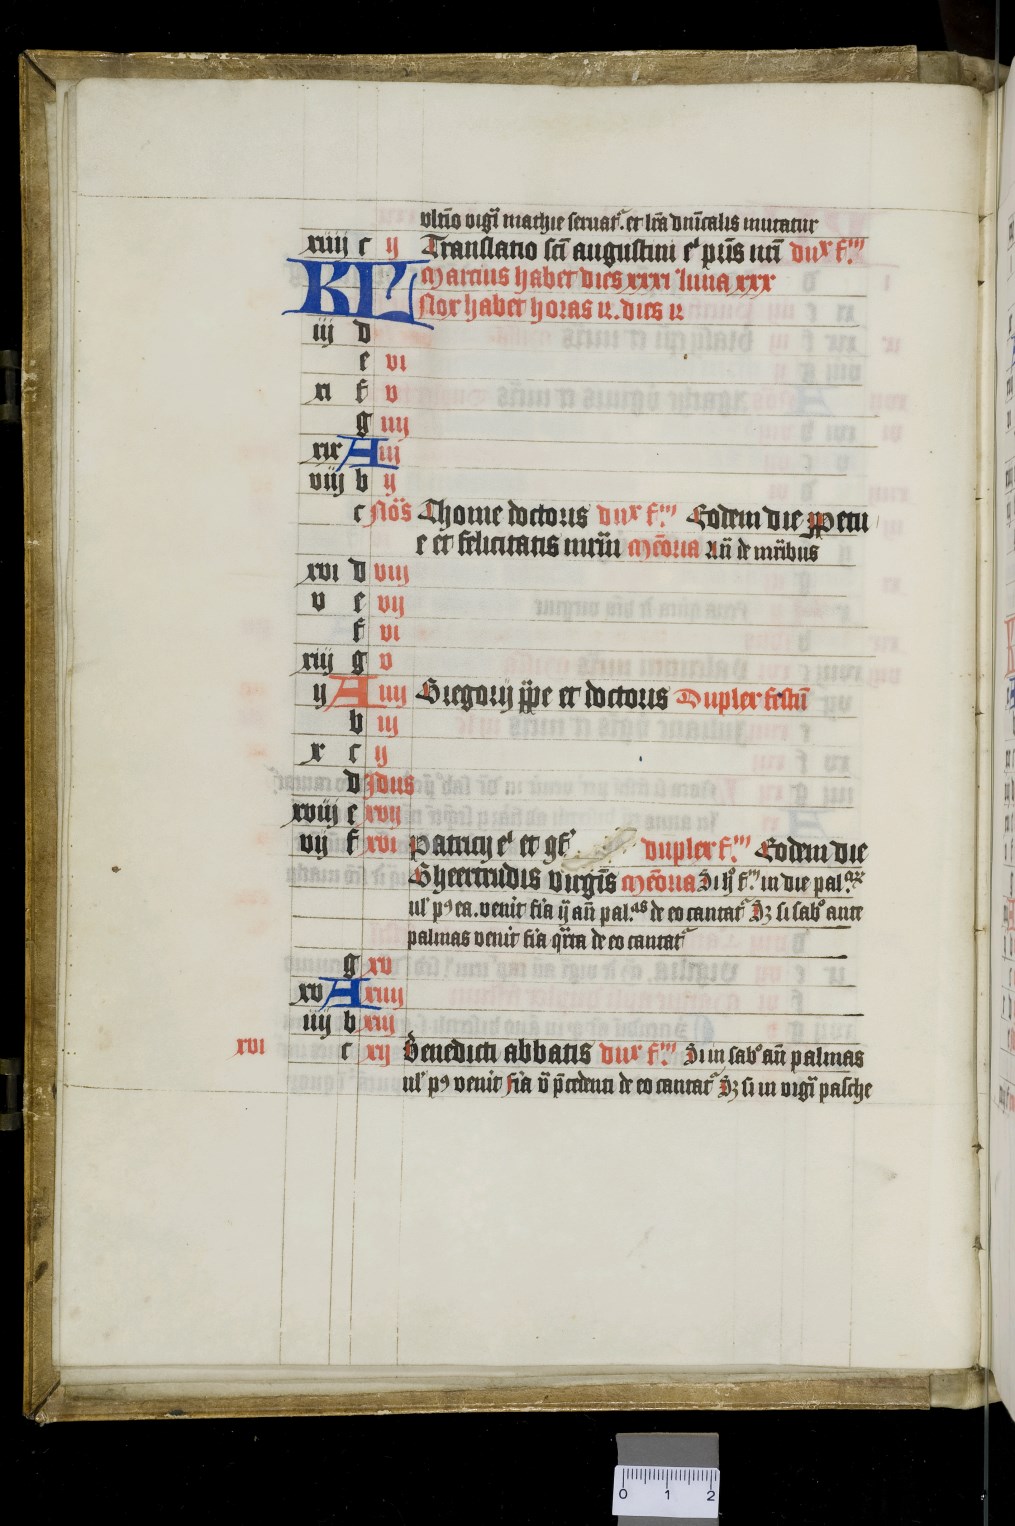 vltīo vigī mathie seruat͛. et lr̄a dn̄icalis mutatur
xiiij c ij Translatio sc̄i augustini eͥ pr̄is nr̄i dux f.ᵐ
KL Marcius habet dies xxxi luna xxx
Nox habet horas ix. dies ix
iij d
e vi
xi f v
g iiij
xix A iij
viij b ij
c Nōs Thome doctoris dux f.ᵐ Eodem die ꝑpetu
e et felicitatis mr̄m Mēōria Añ de mr̄ibus
xvi d viij
v e vij
f vi
xiij g v
ij A iiij Gregorij pp̄e et doctoris Duplex festū
b iij
x c ij
d Idus
xviij e xvij
vij f xvi Patricij eͥ et gf͛ duplex f.ᵐ Eodem die
Gheertrudis virgīs Mēōria Si h͛ f.ᵐ in die pal.ᵃʳ
ul͛ pꝰ ea. venit fīa ij añ pal.ᵃˢ de eo cantat͛ Sꝫ si sabᵒ ante
palmas venit fīa qr̄ta de eo cantat͛
g xv
xv A xiiij
iiij b xiij
xvi c xij Benedicti abbatis dux f.ᵐ Si in sabᵒ añ palmas
ul͛ pꝰ venit fīa v̄ p̄cedenti de eo cantat͛ Sꝫ si in vigī pasche
0 1 2